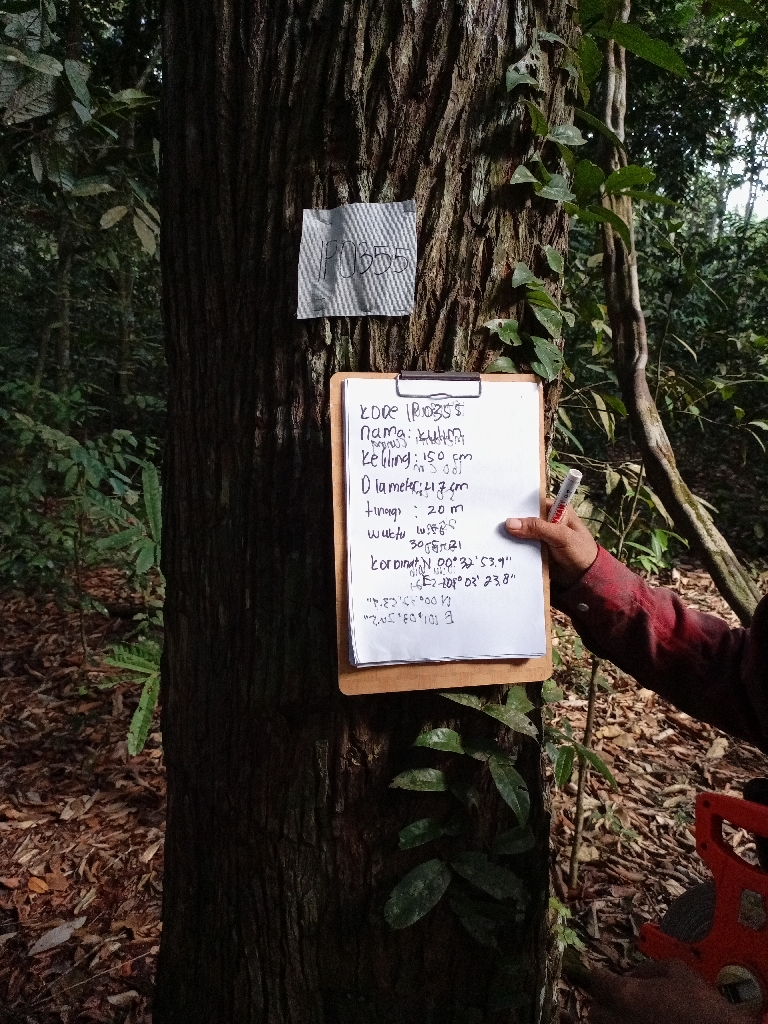 IP0355
KODE IP0355
nama: Kulim
Keliling: 150 cm
Diameter: 47 cm
tinggi : 20 m
waktu
Kordinat N 00° 32' 53.9"
03' 23.8"